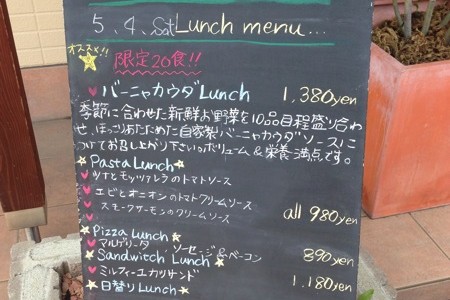 5.4. Sat Lunch menu...
オススメ!!
限定20食!!
バーニャカウダLunch 1,380yen
季節に合わせた新鮮な野菜を10品目程盛り合わ
せ、ほっこりあたためた自家製バーニャカウダソースに
つけてお召し上がり下さい。ボリューム&栄養満点です。
Pasta Lunch
ツナとモッツァレラのトマトソース
エビとオニオンのトマトクリームソース
スモークサーモンのクリームソース all 980yen
Pizza Lunch
マルゲリータ ソーセージ&ベーコン 890yen
Sandwitch Lunch
ミルフィーユカツサンド 1,180yen
日替りLunch